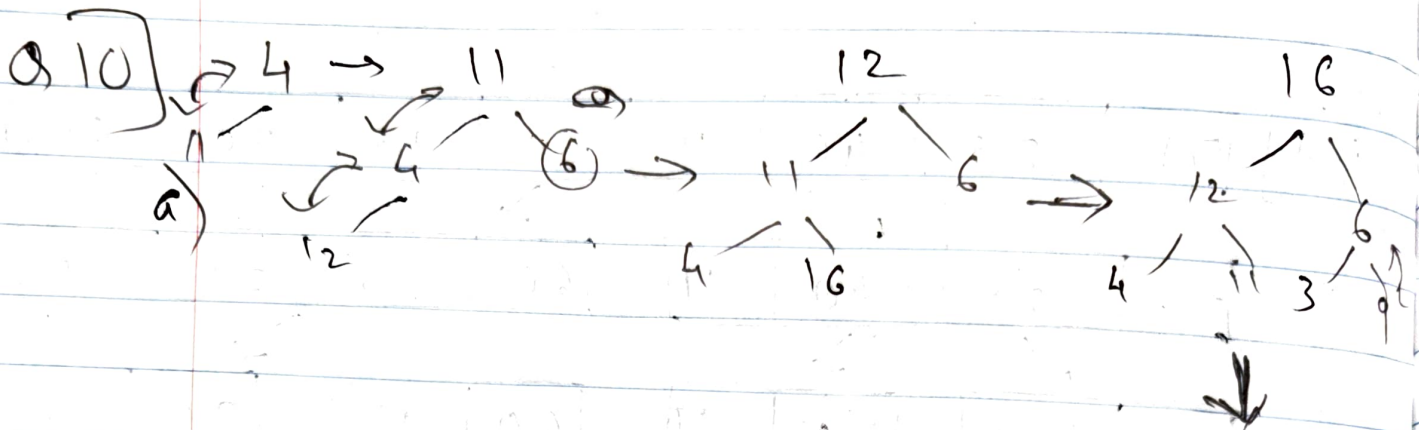 Q 10] 4 → 11 12 16
11 4 6 → 11 6 → 12 6
a) 12 4 16 4 11 3 9